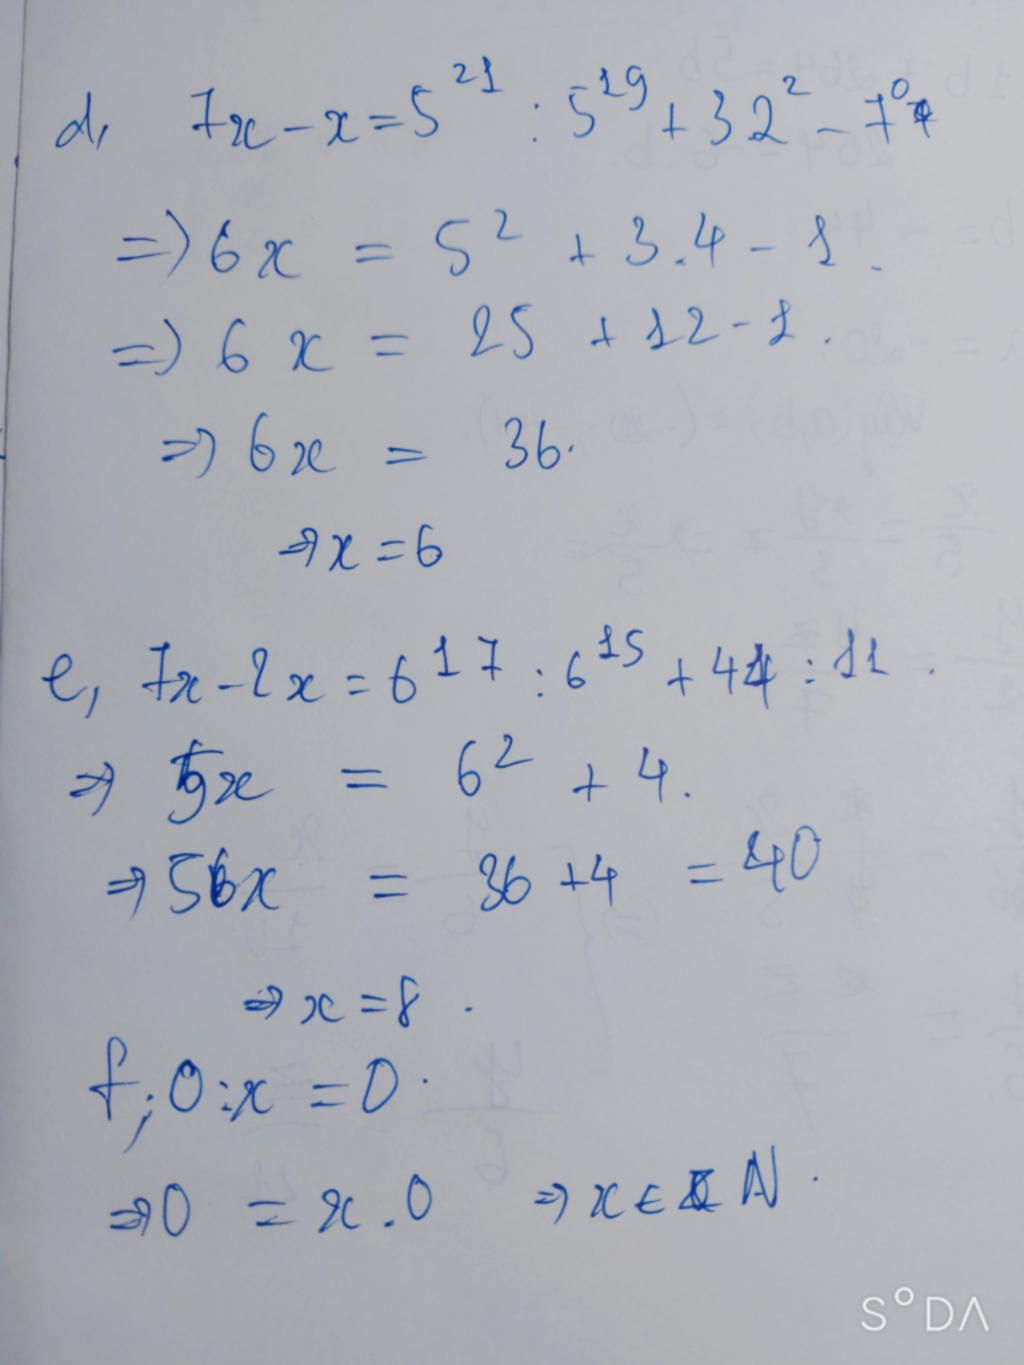 d, 7x - x = 5²¹ : 5¹⁹ + 32² - 7⁰
=> 6x = 5² + 3.4 - 1.
=> 6x = 25 + 12 - 1.
=> 6x = 36.
=> x = 6
e, 7x - 2x = 6¹⁷ : 6¹⁵ + 44 : 11.
=> 5x = 6² + 4.
=> 5x = 36 + 4 = 40
=> x = 8.
f, 0 : x = 0.
=> 0 = x . 0 => x ∈ N.
S°DA